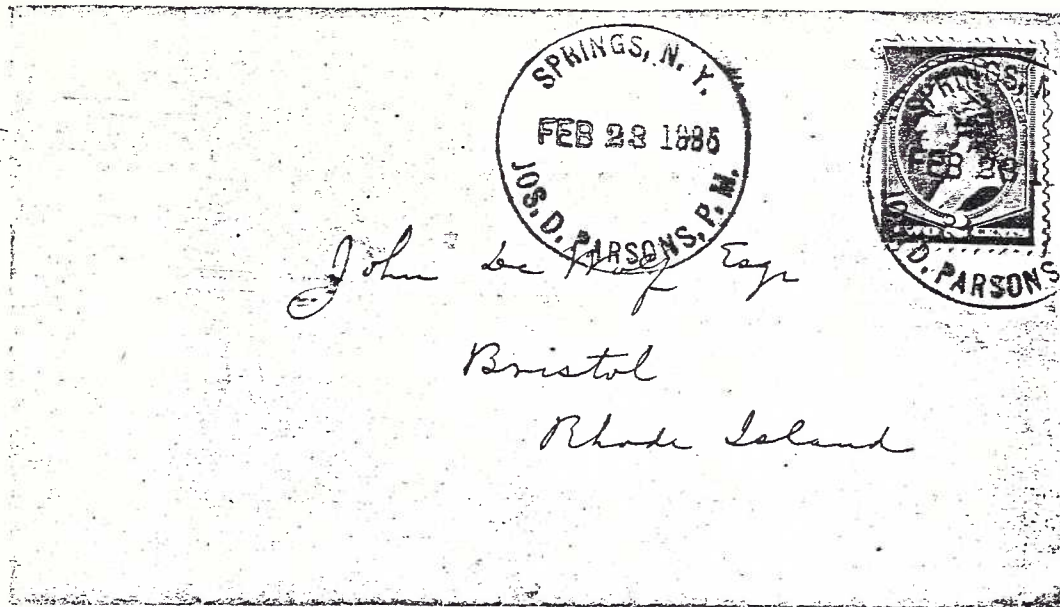 SPRINGS, N. Y.
FEB 23 1885
JOS. D. PARSONS, P. M.
SPRINGS,
FEB 23
JOS. D. PARSONS
John De Wolf Esqr
Bristol
Rhode Island